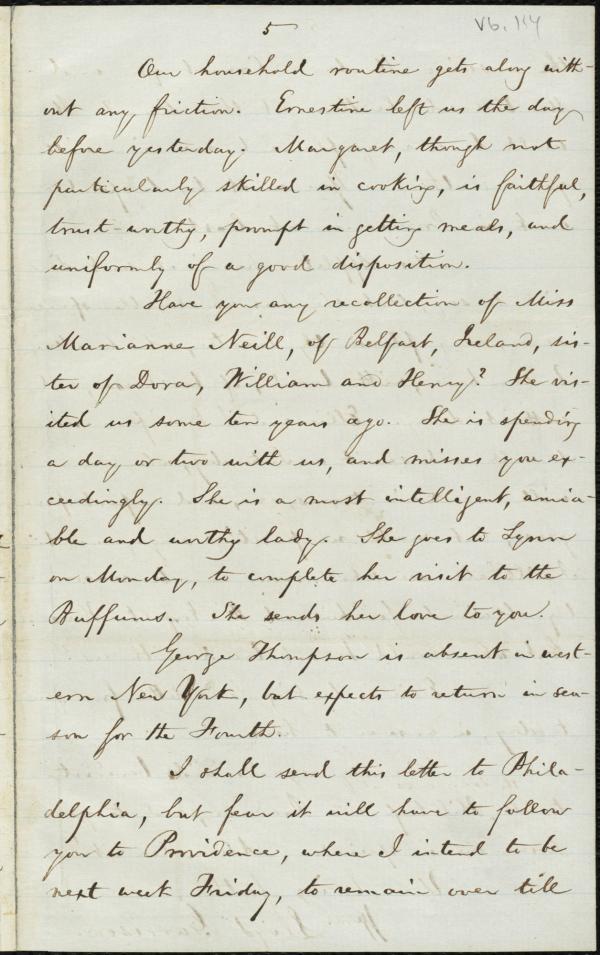 5
V6. 114
Our household routine gets along with-
out any friction. Ernestine left us the day
before yesterday. Margaret, though not
particularly skilled in cooking, is faithful,
trust-worthy, prompt in getting meals, and
uniformly of a good disposition.
Have you any recollection of Miss
Marianne Neill, of Belfast, Ireland, sis-
ter of Dora, William and Henry? She vis-
ited us some ten years ago. She is spending
a day or two with us, and misses you ex-
ceedingly. She is a most intelligent, amia-
ble and worthy lady. She goes to Lynn
on Monday, to complete her visit to the
Buffums. She sends her love to you.
George Thompson is absent in west-
ern New York, but expects to return in sea-
son for the Fourth.
I shall send this letter to Phila-
delphia, but fear it will have to follow
you to Providence, where I intend to be
next week Friday, to remain over till